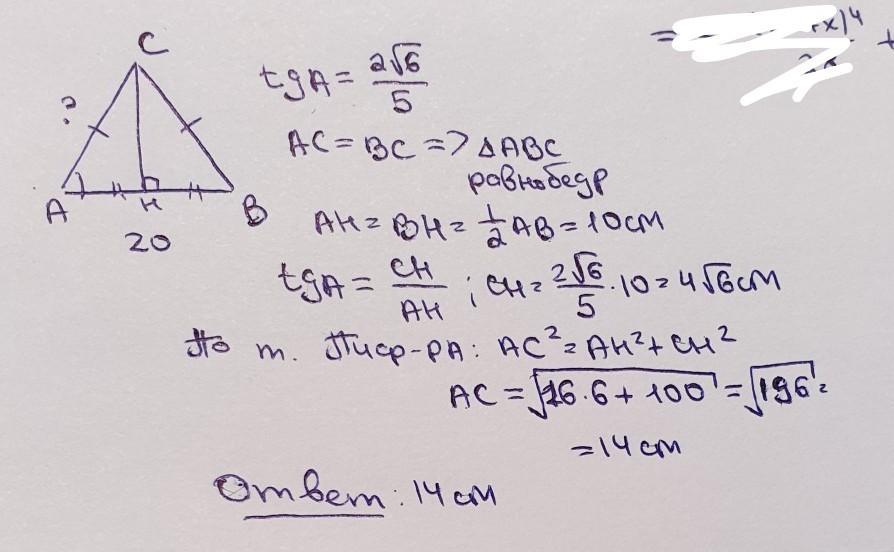 C
?
A
H
B
20
tgA = 2√6/5
AC = BC => △ABC
равнобедр
AH = BH = 1/2 AB = 10 см
tgA = CH/AH ; CH = 2√6/5 · 10 = 4√6 см
По т. Пифр-РА: AC² = AH² + CH²
AC = √16·6 + 100 = √196 =
= 14 см
Ответ: 14 см